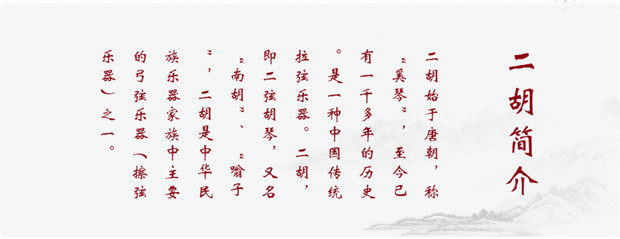 二胡简介
二胡始于唐朝，称
“奚琴”，至今已
有一千多年的历史
。是一种中国传统
拉弦乐器。二胡，
即二弦胡琴，又名
“南胡”、“嗡子
”，二胡是中华民
族乐器家族中主要
的弓弦乐器（擦弦
乐器）之一。